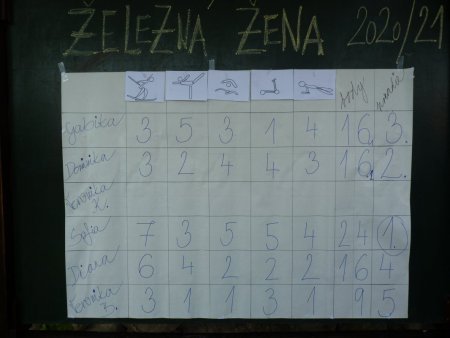 ŽELEZNÁ ŽENA 2020/21
body
Gabika 3 5 3 1 4 16, 3.
Dominika 3 2 4 4 3 16, 2.
Veronika K.
Sofia 7 3 5 5 4 24 1.
Diana 6 4 2 2 2 16 4
Veronika 3 1 1 3 1 9 5